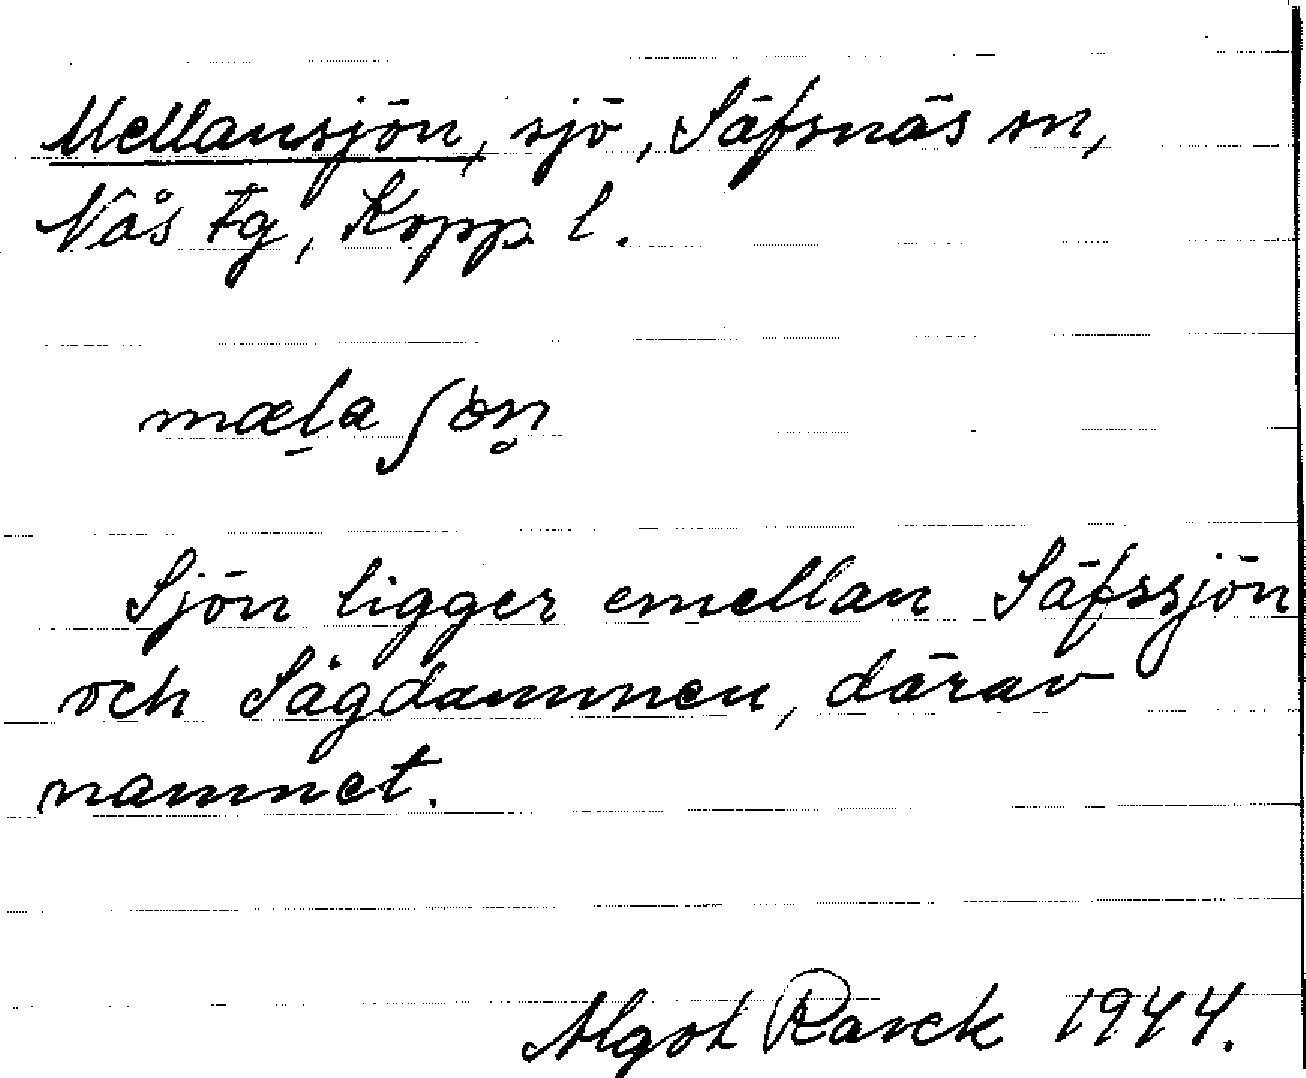 Mellansjön, sjö, Säfsnäs sn,
Nås tg, Kopp l.
mæl̠a ʃön̥
Sjön ligger emellan Säfssjön
och Sågdammen, därav
namnet.
Algot Rasck 1944.